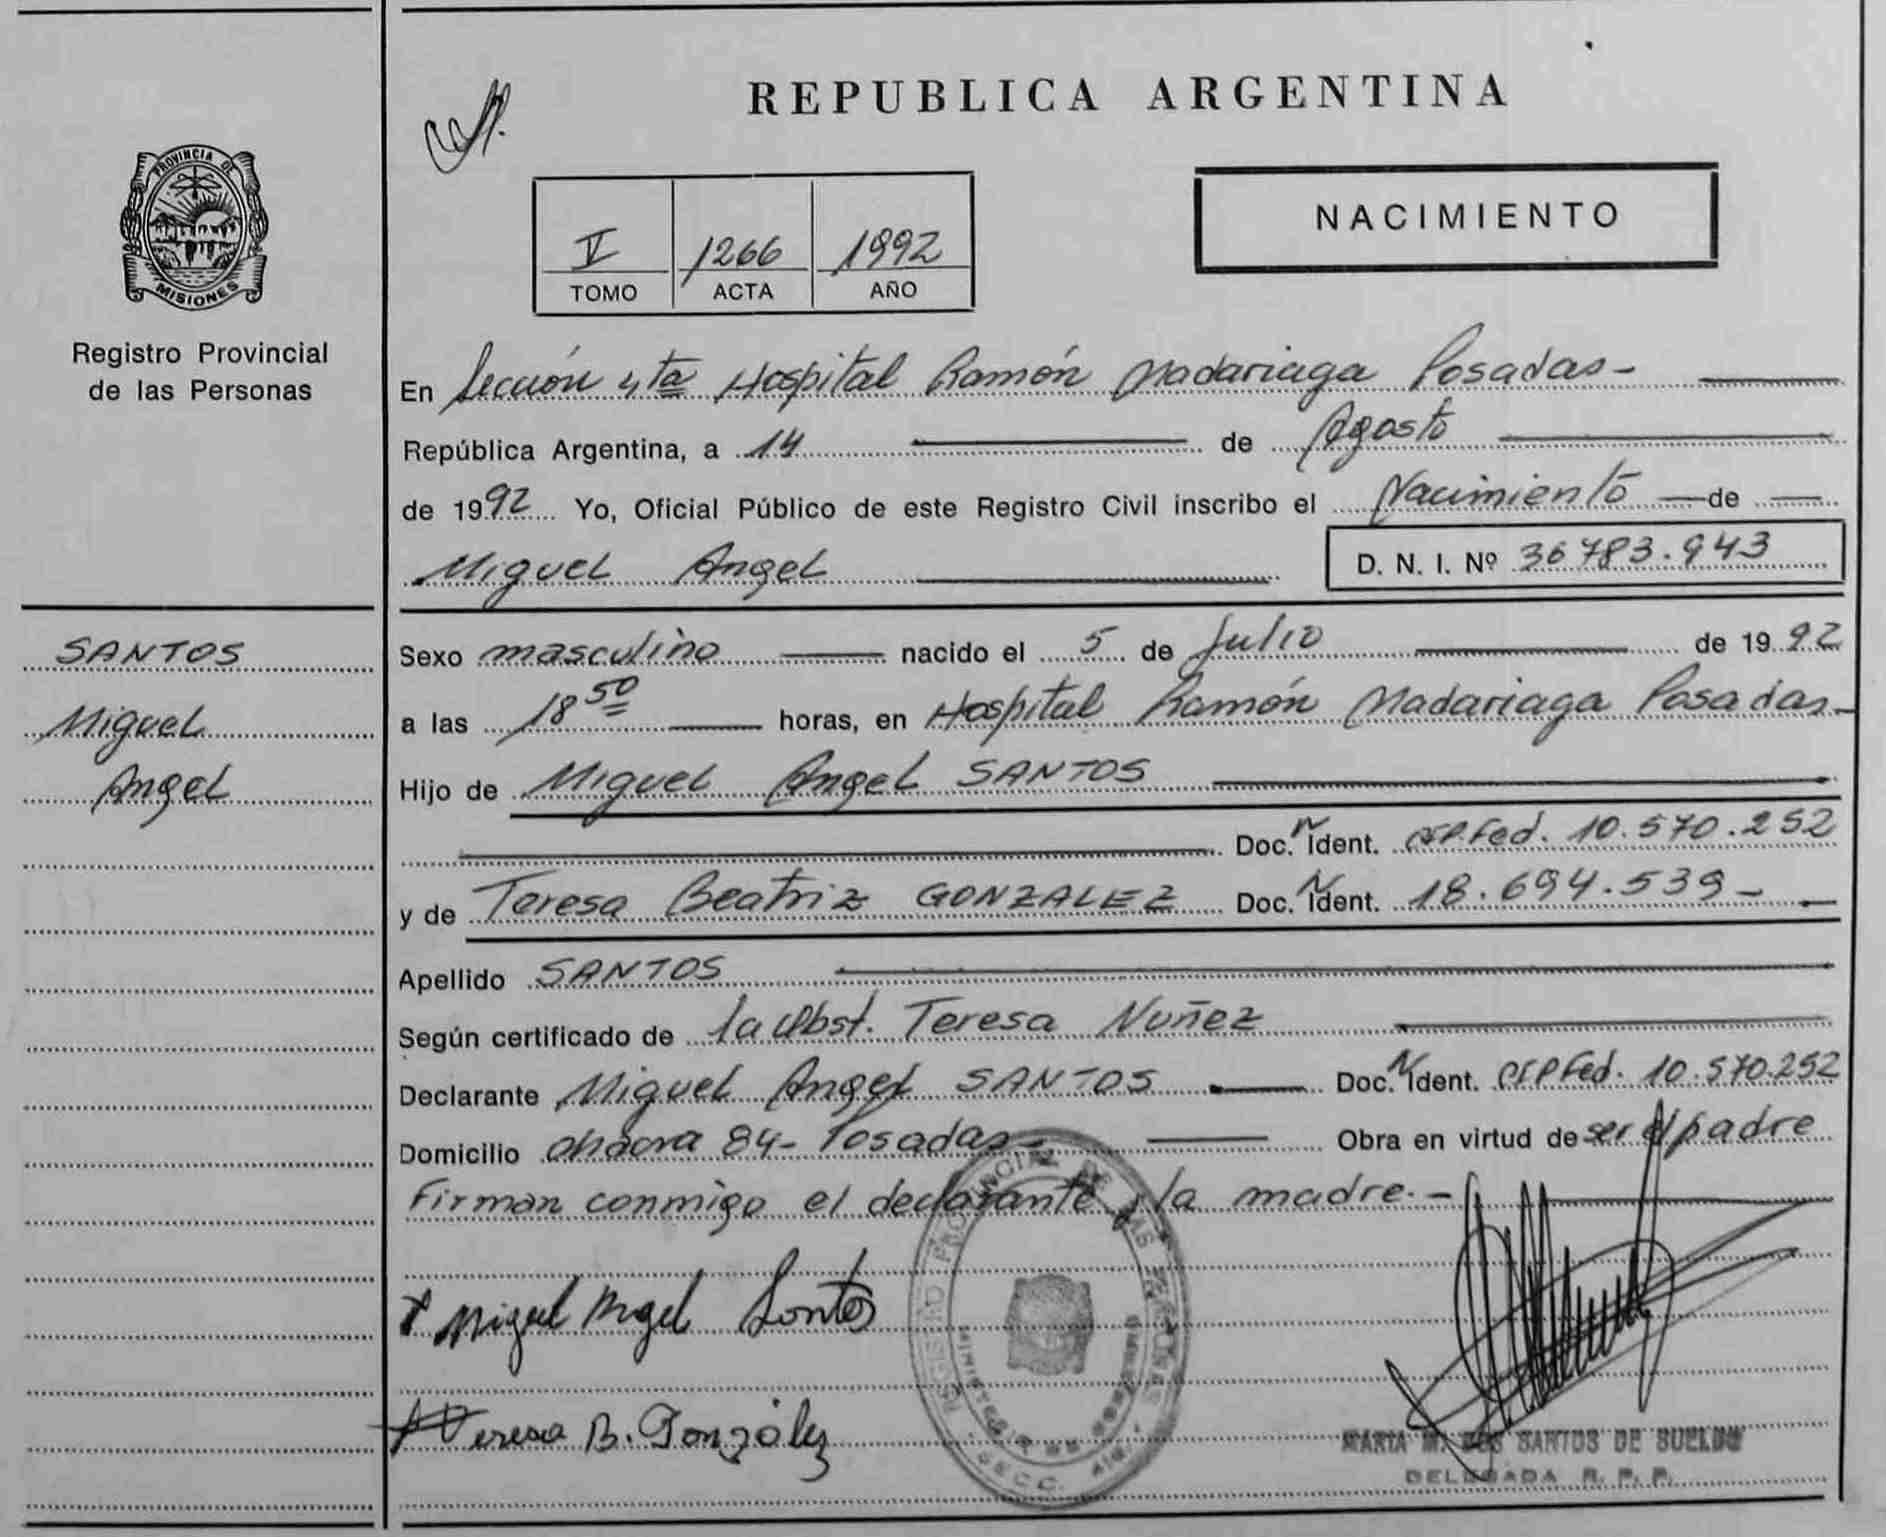 REPUBLICA ARGENTINA
PROVINCIA DE
MISIONES
Registro Provincial
de las Personas
NACIMIENTO
V 1266 1992
TOMO ACTA AÑO
En Sección 4ta Hospital Ramón Madariaga Posadas-
República Argentina, a 14 de Agosto
de 1992 Yo, Oficial Público de este Registro Civil inscribo el Nacimiento de
Miguel Angel D. N. I. Nº 36783.943
SANTOS
Miguel
Angel
Sexo masculino nacido el 5 de Julio de 1992
a las 18 50 horas, en Hospital Ramón Madariaga Posadas-
Hijo de Miguel Angel SANTOS
Doc. N Ident. Fed. 10.570.252
y de Teresa Beatriz GONZALEZ Doc. N Ident. 18.694.539-
Apellido SANTOS
Según certificado de la Obst. Teresa Nuñez
Declarante Miguel Angel SANTOS Doc. N Ident. Fed. 10.570.252
Domicilio chacra 84- Posadas- Obra en virtud de ser el padre
Firman conmigo el declarante y la madre.-
Miguel Angel Santos
Teresa B. González
MARIA M. DOS SANTOS DE SUELDO
DELEGADA R. P. P.